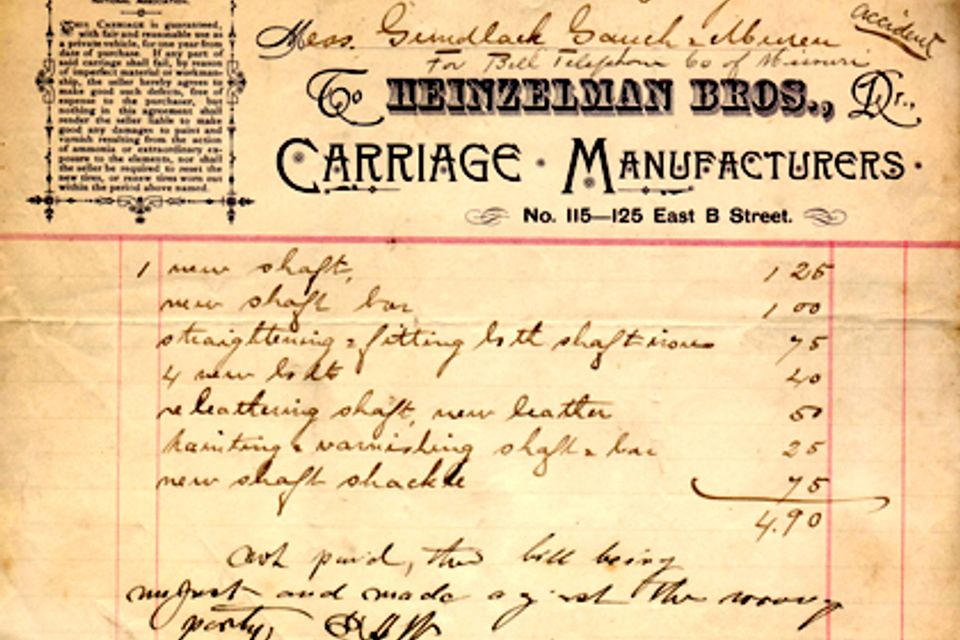 NATIONAL ASSOCIATION.
THIS CARRIAGE is guaranteed,
with fair and reasonable use as
a private vehicle, for one year from
date of purchase. If any part of
said carriage shall fail, by reason
of imperfect material or workman-
ship, the seller hereby agrees to
make good such defects, free of
expense to the purchaser, but
nothing in this agreement shall
render the seller liable to make
good any damages to paint and
varnish resulting from the action
of ammonia or extraordinary ex-
posure to the elements, nor shall
the seller be required to reset the
new tires, or renew tires worn out
within the period above named.
accident
Mess. Gundlach Gauch & Muren
For Bell Telephone Co of Missouri
To HEINZELMAN BROS., Dr.,
CARRIAGE · MANUFACTURERS ·
No. 115—125 East B Street.
1 new shaft, 1 25
new shaft bar 1 00
straightening & fitting both shaft irons 75
4 new bolts 40
releathering shaft, new leather 50
painting & varnishing shaft & bar 25
new shaft shackle 75
4.90
Not paid, the bill being
unjust and made against the wrong
party,